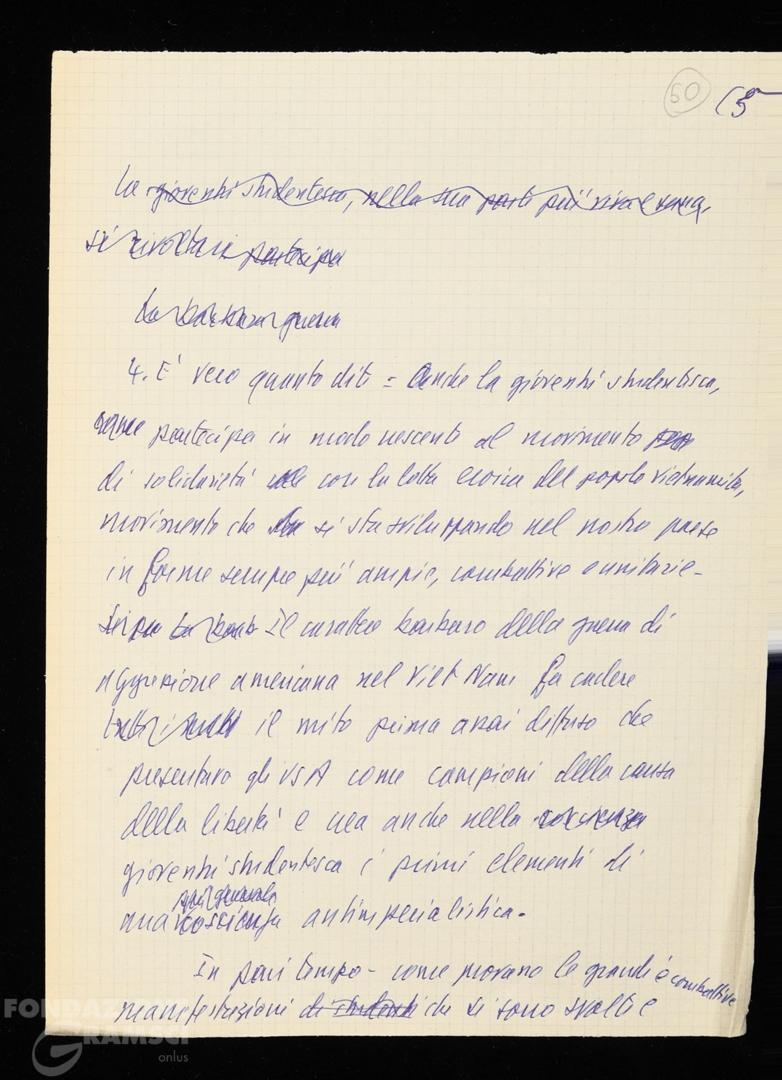 50 (5
La gioventù studentesca, nella sua parte più viva e sana,
si rivolta partecipa
La barbara guerra
4. È vero quanto dite = Anche la gioventù studentesca,
partecipa in modo crescente al movimento
di solidarietà con la lotta eroica del popolo vietnamita,
movimento che si sta sviluppando nel nostro paese
in forme sempre più ampie, combattive e unitarie -
Il carattere barbaro della guerra di
aggressione americana nel Viet Nam fa cadere
il mito prima assai diffuso che
presentava gli USA come campioni della causa
della libertà e crea anche nella coscienza
gioventù studentesca i primi elementi di
più generale
una coscienza antimperialistica.
In pari tempo - come provano le grandi e combattive
manifestazioni di studenti che si sono svolte
FONDAZIONE
GRAMSCI
onlus